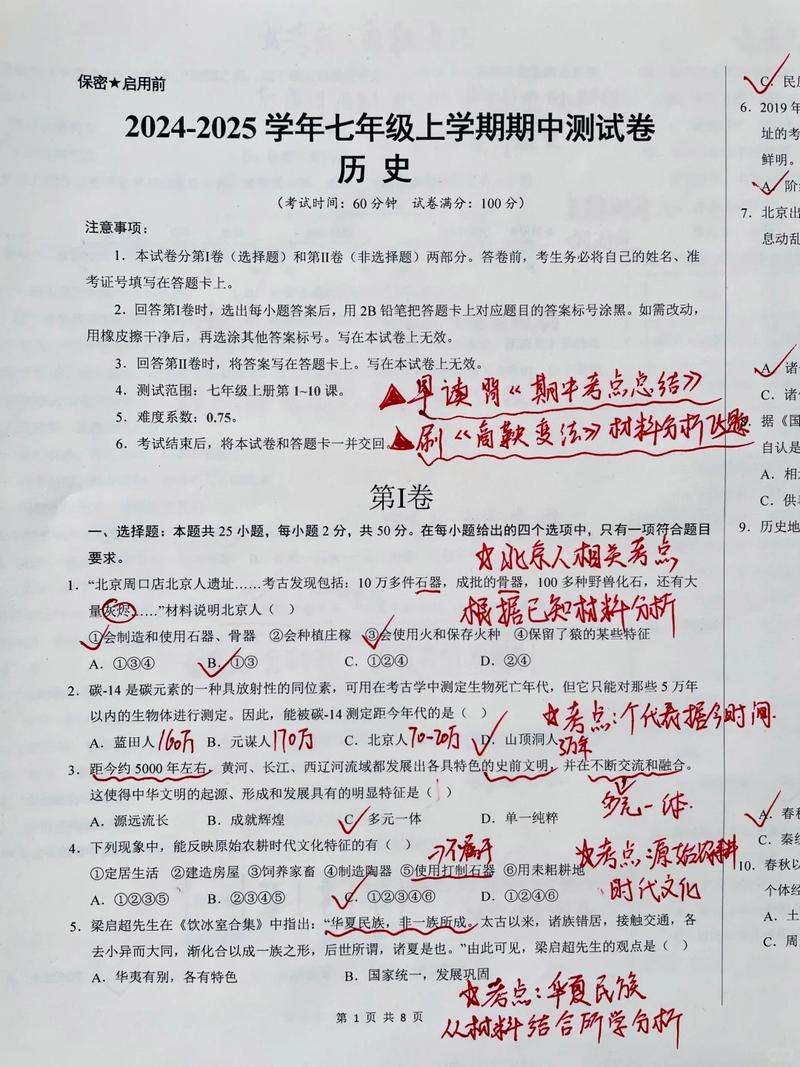 保密★启用前
2024-2025 学年七年级上学期期中测试卷
历 史
（考试时间：60 分钟 试卷满分：100 分）
注意事项：
1．本试卷分第Ⅰ卷（选择题）和第Ⅱ卷（非选择题）两部分。答卷前，考生务必将自己的姓名、准
考证号填写在答题卡上。
2．回答第Ⅰ卷时，选出每小题答案后，用 2B 铅笔把答题卡上对应题目的答案标号涂黑。如需改动，
用橡皮擦干净后，再选涂其他答案标号。写在本试卷上无效。
3．回答第Ⅱ卷时，将答案写在答题卡上。写在本试卷上无效。
4．测试范围：七年级上册第 1~10 课。
▲早读背《期中考点总结》
5．难度系数：0.75。
6．考试结束后，将本试卷和答题卡一并交回。
▲刷《商鞅变法》材料分析题
第Ⅰ卷
一、选择题：本题共 25 小题，每小题 2 分，共 50 分。在每小题给出的四个选项中，只有一项符合题目
要求。
☆北京人相关考点
1．“北京周口店北京人遗址……考古发现包括：10 万多件石器，成批的骨器，100 多种野兽化石，还有大
量灰烬……”材料说明北京人（ ）
根据已知材料分析
①会制造和使用石器、骨器 ②会种植庄稼 ③会使用火和保存火种 ④保留了猿的某些特征
A．①③④ B．①③ C．①②④ D．②④
2．碳-14 是碳元素的一种具放射性的同位素，可用在考古学中测定生物死亡年代，但它只能对那些 5 万年
以内的生物体进行测定。因此，能被碳-14 测定距今年代的是（ ）
☆考点：个代表据今时间．
A．蓝田人 160万 B．元谋人 170万 C．北京人 70-20万 D．山顶洞人 3万年
3．距今约 5000 年左右，黄河、长江、西辽河流域都发展出各具特色的史前文明，并在不断交流和融合。
这使得中华文明的起源、形成和发展具有的明显特征是（ ）
多元一体．
A．源远流长 B．成就辉煌 C．多元一体 D．单一纯粹
4．下列现象中，能反映原始农耕时代文化特征的有（ ）
→不属于
☆考点 源始农耕
时代文化
①定居生活 ②建造房屋 ③饲养家畜 ④制造陶器 ⑤使用打制石器 ⑥用耒耜耕地
A．①②③⑤ B．②③④⑤ C．①②③④⑥ D．①②④⑥
5．梁启超先生在《饮冰室合集》中指出：“华夏民族，非一族所成。太古以来，诸族错居，接触交通，各
去小异而大同，渐化合以成一族之形，后世所谓，诸夏是也。”由此可见，梁启超先生的观点是（ ）
A．华夷有别，各有特色 B．国家统一，发展巩固
☆考点：华夏民族
从材料结合所学分析
第 1 页 共 8 页
C．民
6．2019 年
址的考
鲜明。
A．阶
7．北京出
息动乱
A．诸
C．诸
据《国
自认是
A．相
C．供
9．历史地
A．春秋
C．秦
10．春秋以
个体经
A．土
C．周